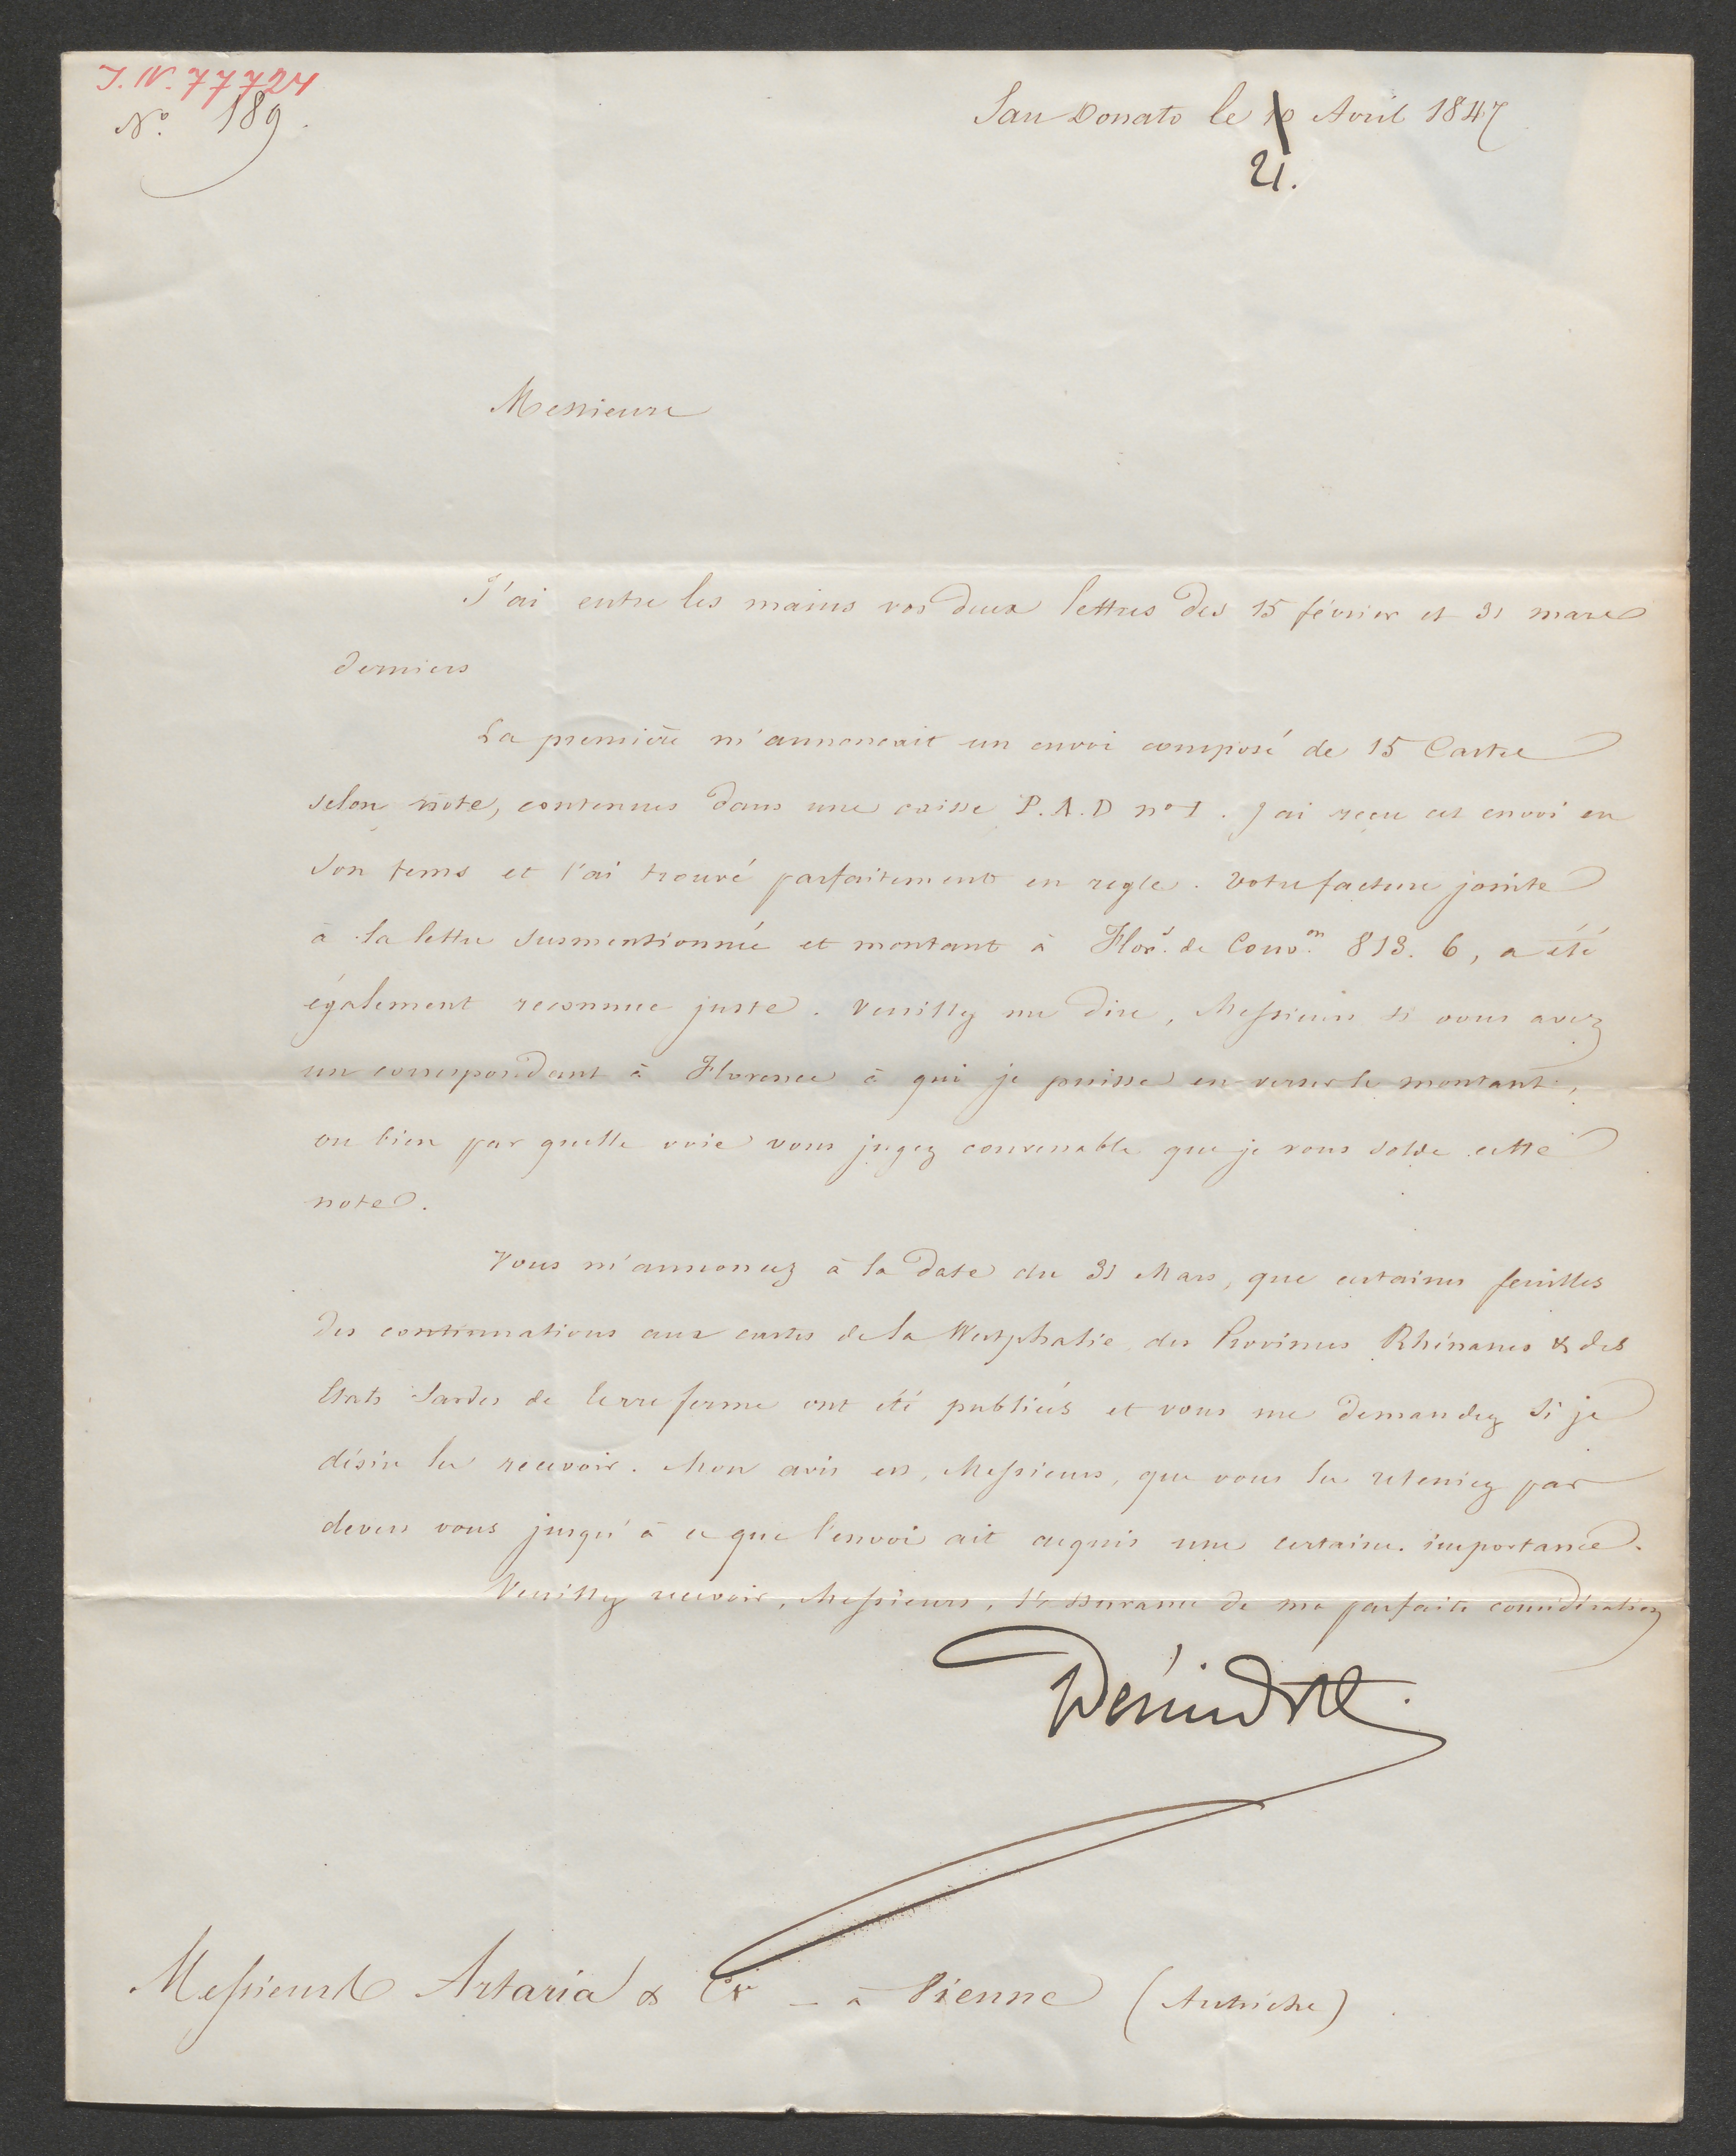 I.N. 77724
N.º 189.
San Donato le 10 Avril 1847
21.
Messieurs
J'ai entre les mains vos deux lettres des 15 février et 31 mars
derniers
La première m'annoncait un envoi composé de 15 Cartes
selon note, contenues dans une caisse P.A.D nº 1. J'ai reçu cet envoi en
son tems et l'ai trouvé parfaitement en regle. Votre facture jointe
à la lettre susmentionnée et montant à Flor.s de Conv.on 813. 6, a été
également reconnue juste. Veuillez me dire, Messieurs si vous avez
un correspondant à Florence à qui je puisse en verser le montant,
ou bien par quelle voie vous jugez convenable que je vous solde cette
note.
Vous m'annoncez à la date du 31 Mars, que certaines feuilles
des continuations aux cartes de la Westphalie, des Provinces Rhénanes & des
Etats Sardes de terre ferme ont été publiées et vous me demandez si je
désire les recevoir. Mon avis est, Messieurs, que vous les reteniez par
devers vous jusqu'à ce que l'envoi ait acquis une certaine importance.
Veuillez recevoir, Messieurs, l'assurance de ma parfaite considération
Démidoff.
Messieurs Artaria & Cie – à Vienne (Autriche)